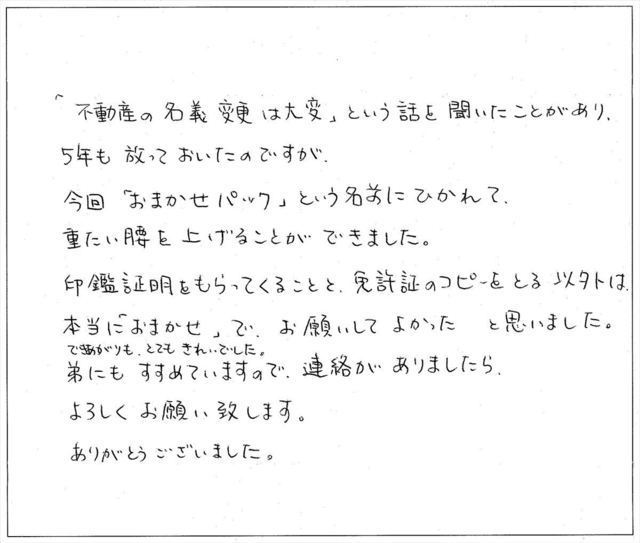 「不動産の名義変更は大変」という話を聞いたことがあり、
5年も放っておいたのですが、
今回「おまかせパック」という名前にひかれて、
重たい腰を上げることができました。
印鑑証明をもらってくることと、免許証のコピーをとる以外は、
本当に「おまかせ」で、お願いしてよかったと思いました。
できあがりも、とてもきれいでした。
弟にもすすめていますので、連絡がありましたら、
よろしくお願い致します。
ありがとうございました。